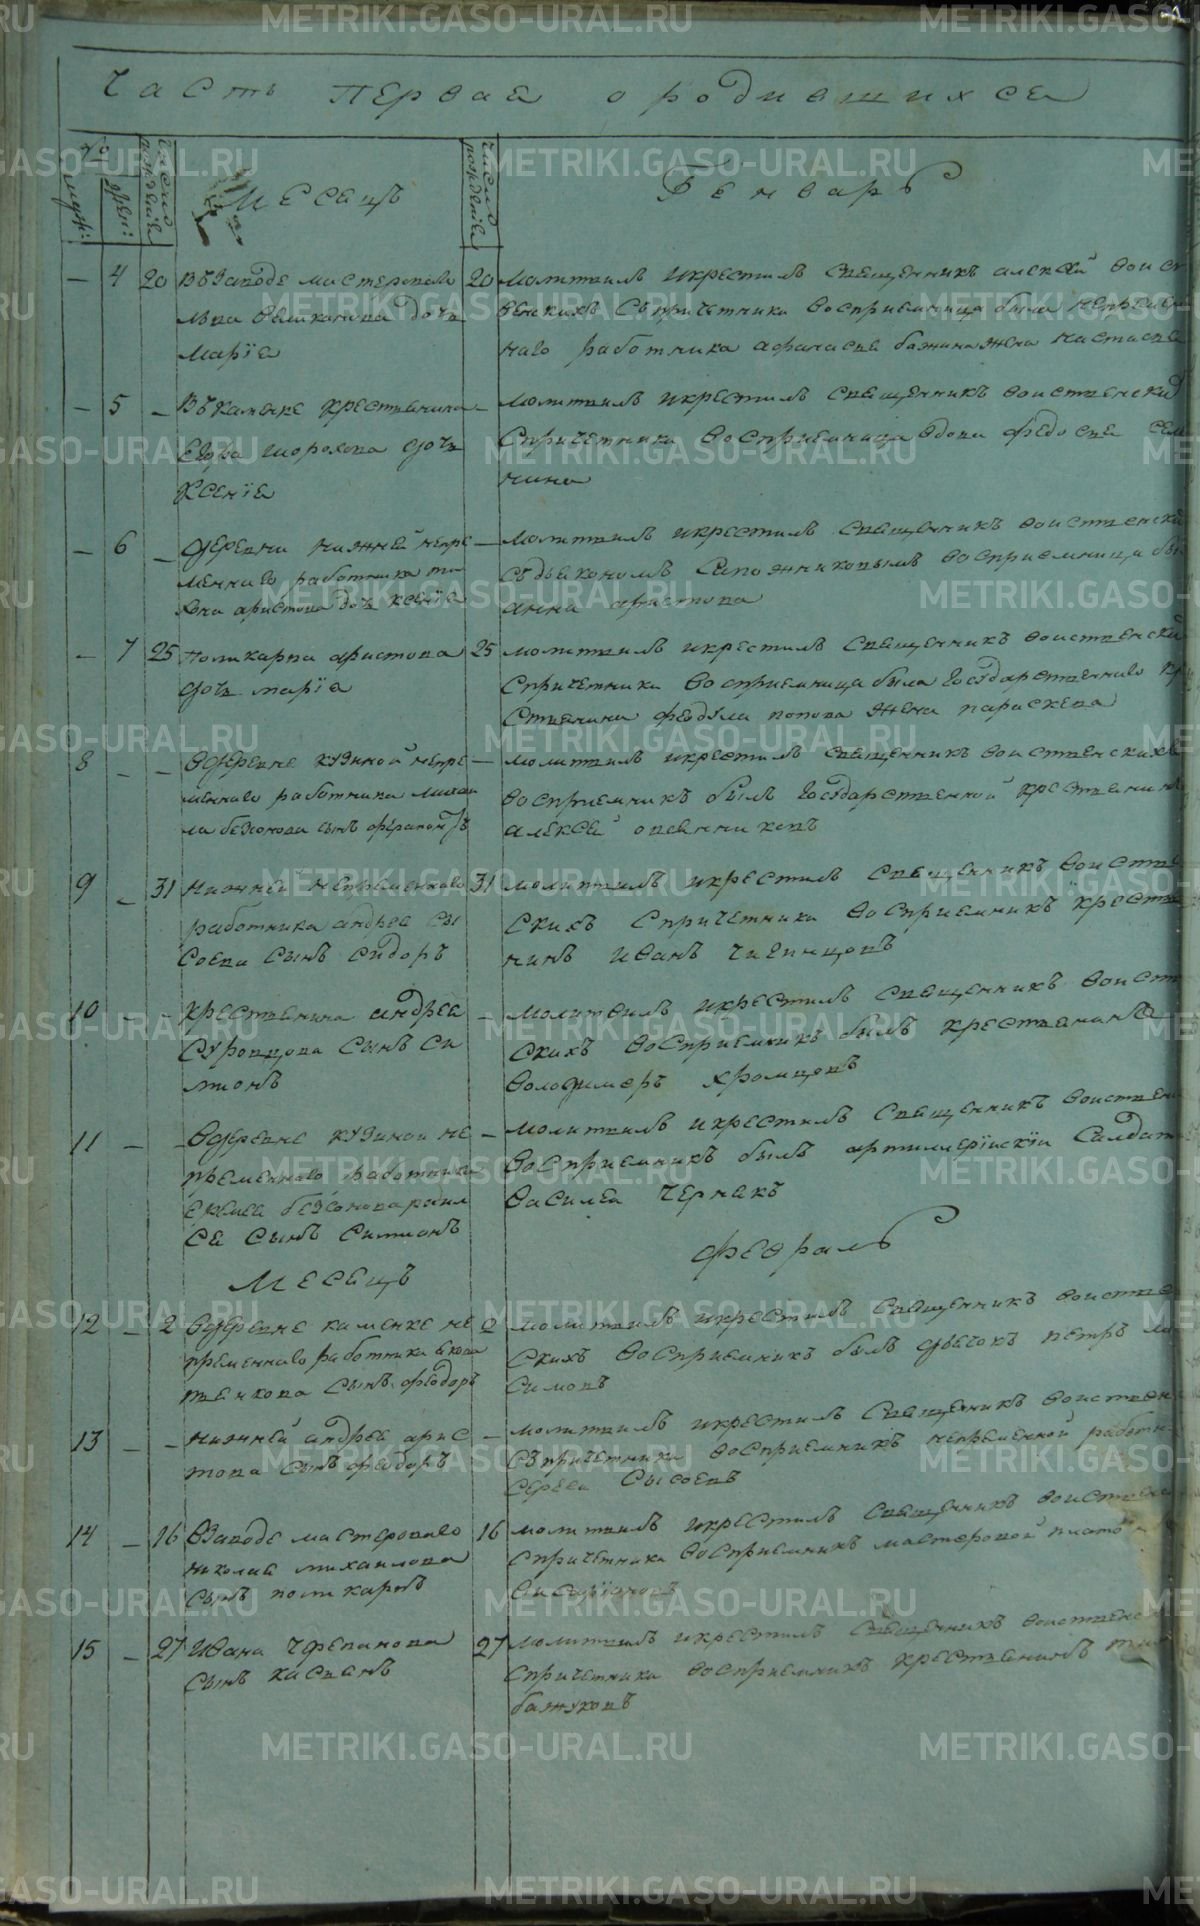 Часть первая о родившихся
№ муж:
жен:
число рождение
Месецъ
число рождение
Генварь
— 4 20 Въ Заводе мастероваго
льва великанова дочь
Марїя
20 молитвилъ икрестилъ священникъ алексей воист
венскихъ Съпричетники восприемница была непремен
наго работника афанасея бажина жена настасея
— 5 — Въ каменке крестьянина
Егора шорохова дочь
Ксенїя
— молитвилъ икрестилъ священникъ воиственский
Спричетники восприемница вдова федосея сем
нина
— 6 — деревни нижней непре
меннаго работника ти
хона аристова дочь ксенїя
— молитвилъ икрестилъ священникъ воиственский
Съдьякономъ Сапожниковымъ восприемница бы
анна аристова
— 7 25 Поликарпа аристова
дочь марїя
25 молитвилъ икрестилъ священникъ воиственский
Спричетники восприемница была государственнаго кр
стьянина федула попова жена параскева
8 — — вдеревне кузиной непре
меннаго работника михаи
ла безсонова сынъ ферапонтъ
— молитвилъ икрестилъ священникъ воиственскихъ
восприемникъ былъ государственной крестьянинъ
алексей овсянниковъ
9 — 31 Нижней непременнаго
работника андрея сы
соева сынъ сидоръ
31 молитвилъ икрестилъ священникъ воистве
скихъ Спричетники восприемникъ крестья
нинъ иванъ чаенцовъ
10 — — крестьянина андрея
суровцова сынъ си
мионъ
— молитвилъ икрестилъ священникъ воиств
скихъ восприемникъ былъ крестьянинъ
володимеръ хромцовъ
11 — — вдеревне кузиной не
пременнаго работника
безсонова
ся сынъ симионъ
— молитвилъ икрестилъ священникъ воиствен
восприемникъ былъ артиллерїискїи салдатъ
василеа чернакъ
Месецъ
Февраль
12 — 2 вдеревне каменке не
пременнаго работника якова
сынъ феодоръ
2 молитвилъ икрестилъ священникъ воистве
скихъ восприемникъ былъ дьячокъ петръ ма
симовъ
13 — — нижней андрея арис
това сынъ феодоръ
— молитвилъ икрестилъ священникъ воиствен
съпричетники восприемникъ непременной работн
сергей сысоевъ
14 — 16 Взаводе мастероваго
николая михаилова
сынъ поликарпъ
16 молитвилъ икрестилъ священникъ воиствен
спричетники восприемникъ мастеровой платонъ
15 — 27 Ивана черепанова
сынъ касьянъ
27 молитвилъ икрестилъ священникъ воиственс
спричетники восприемникъ крестьянинъ
бажуковъ
METRIKI.GASO-URAL.RU